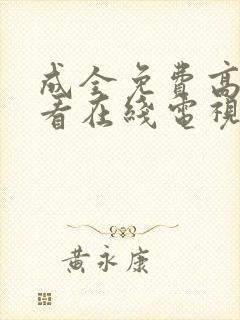 成全免费高
看在綫電視
黄永康